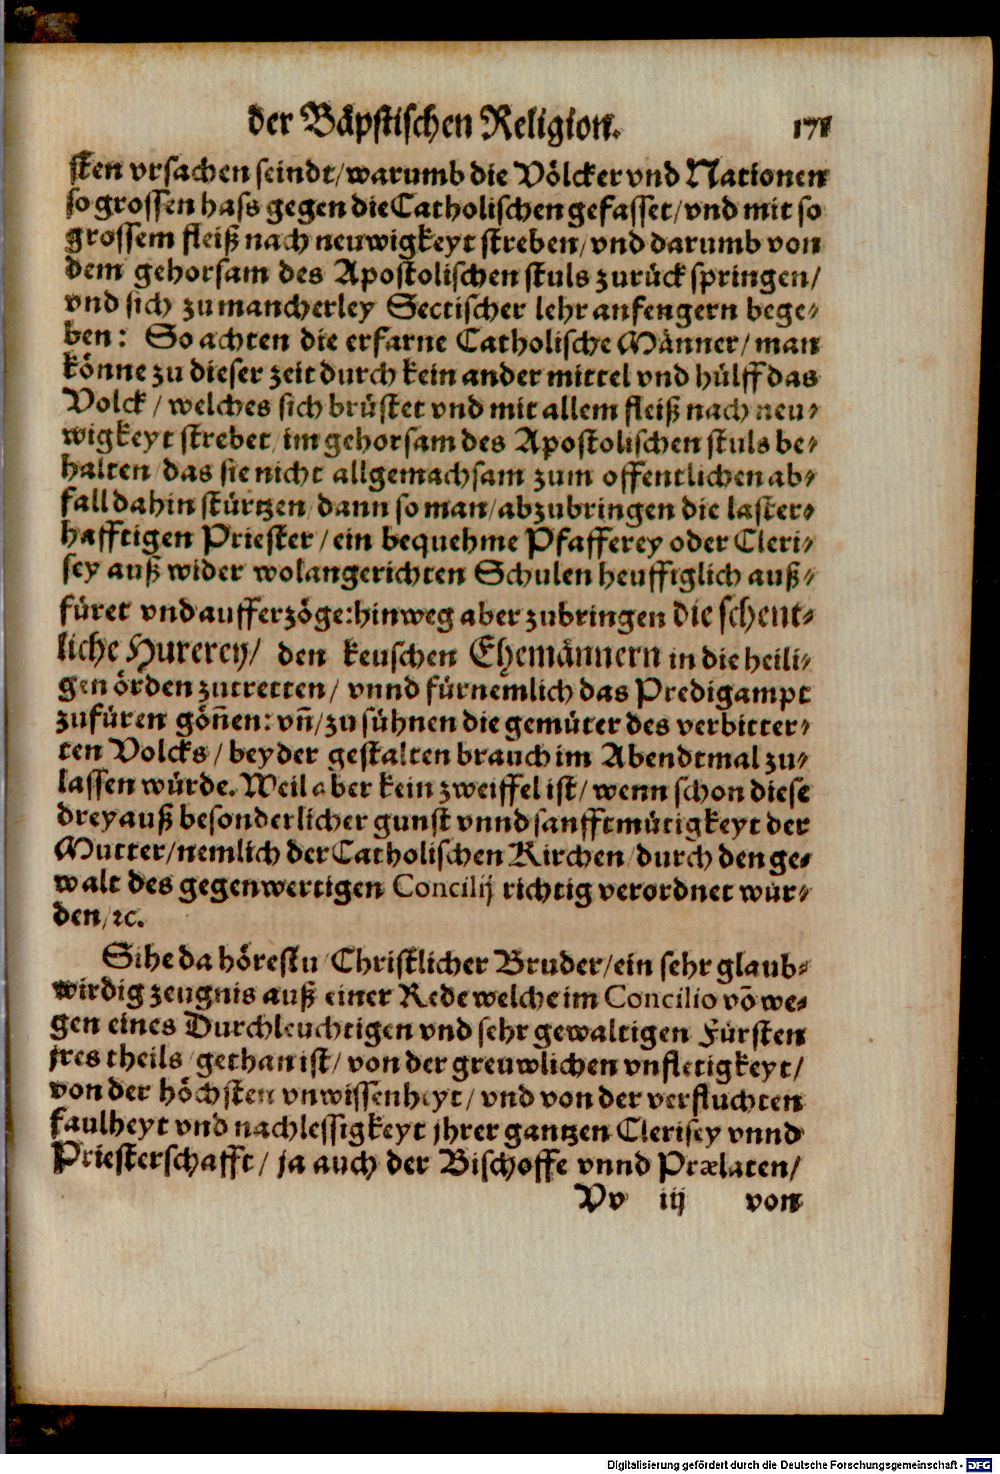 der Bäpstischen Religion. 171
sten vrsachen seindt/warumb die Völcker vnd Nationen
so grossen hass gegen die Catholischen gefasset/vnd mit so
grossem fleiß nach neuwigkeyt streben/vnd darumb von
dem gehorsam des Apostolischen stuls zurück springen/
vnd sich zu mancherley Sectischer lehr anfengern bege⸗
ben: So achten die erfarne Catholische Männer/man
könne zu dieser zeit durch kein ander mittel vnd hülff das
Volck/welches sich brüstet vnd mit allem fleiß nach neu⸗
wigkeyt strebet/im gehorsam des Apostolischen stuls be⸗
halten/das sie nicht allgemachsam zum offentlichen ab⸗
fall dahin stürtzen/dann so man/abzubringen die laster⸗
hafftigen Priester/ein bequehme Pfafferey oder Cleri⸗
sey auß wider wolangerichten Schulen heuffiglich auß⸗
füret vnd aufferzöge:hinweg aber zubringen die schent⸗
liche Hurerey/ den keuschen Ehemännern in die heili⸗
gen örden zutretten/ vnnd fürnemlich das Predigampt
zufüren göñen: vñ/zu sühnen die gemüter des verbitter⸗
ten Volcks/beyder gestalten brauch im Abendtmal zu⸗
lassen würde. Weil aber kein zweiffel ist/wenn schon diese
drey auß besonderlicher gunst vnnd sanfftmütigkeyt der
Mutter/nemlich der Catholischen Kirchen/durch den ge⸗
walt des gegenwertigen Concilij richtig verordnet wür⸗
den/ꝛc.
Sihe da hörestu/Christlicher Bruder/ein sehr glaub⸗
wirdig zeugnis auß einer Rede welche im Concilio võ we⸗
gen eines Durchleuchtigen vnd sehr gewaltigen Fürsten
jres theils/gethan ist/von der greuwlichen vnfletigkeyt/
von der höchsten vnwissenheyt/vnd von der verfluchten
faulheyt vnd nachlessigkeyt jhrer gantzen Clerisey vnnd
Priesterschafft/ja auch der Bischoffe vnnd Prælaten/
Vv iij von
Digitalisierung gefördert durch die Deutsche Forschungsgemeinschaft - DFG